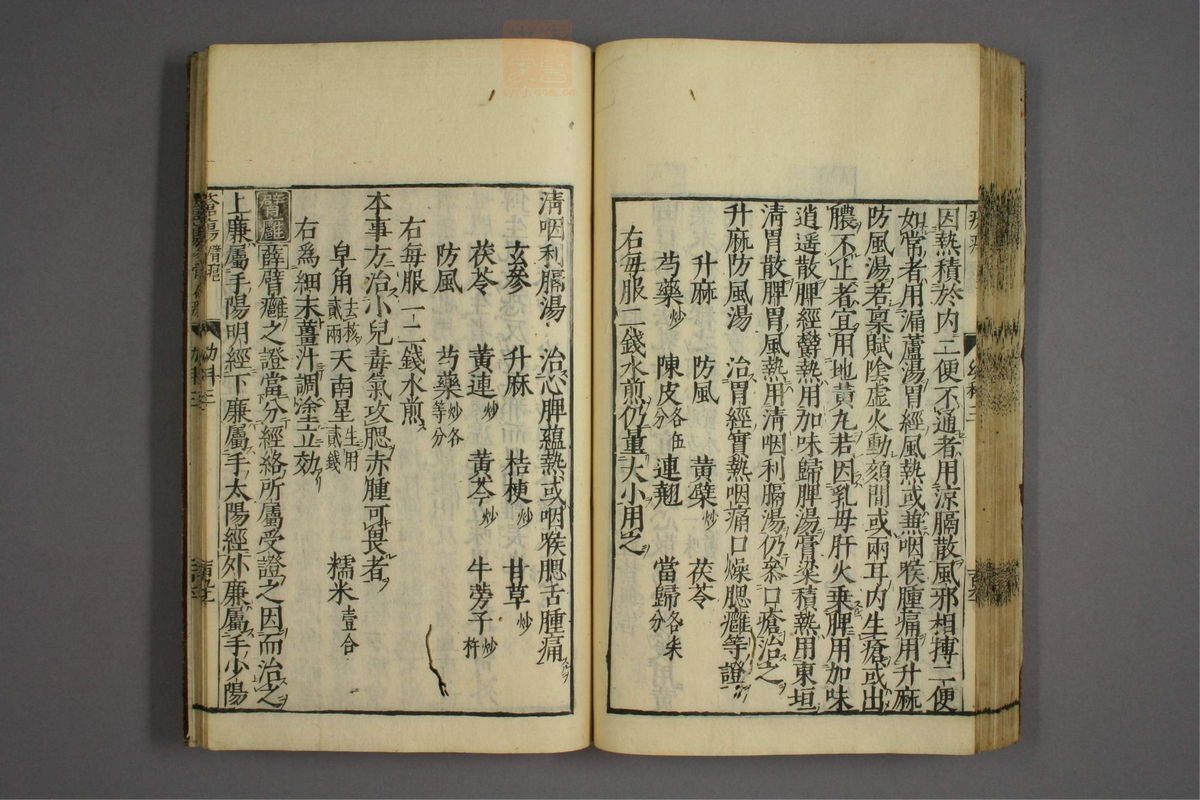 因熱積於内二便不通者用涼膈散風邪相摶二便
如常者用漏蘆湯胃經風熱或兼咽喉腫痛用升麻
防風湯若稟賦陰虛火動頦間或兩耳内生瘡或出
膿不止者宜用地黄丸若因乳母肝火乘脾用加味
逍遥散脾經鬱熱用加味歸脾湯膏粱積熱用東垣
清胃散脾胃風熱用清咽利膈湯仍叅口瘡治之
升麻防風湯 治胃經實熱咽痛口燥腮癰等證
升麻 防風 黄蘗炒 茯苓
芍藥炒 陳皮各伍分 連翹 當歸各柒分
右每服二錢水煎仍量大小用之
清咽利膈湯 治心脾藴熱或咽喉腮舌腫痛
玄參 升麻 桔梗炒 甘草炒
茯苓 黄連炒 黄芩炒 牛蒡子炒杵
防風 芍藥炒各等分
右每服一二錢水煎
本事方治小兒毒氣攻腮赤腫可畏者
皁角去核貳兩 天南星生用貳錢 糯米壹合
右爲細末薑汁調塗立効
臂癰 薛臂癰之證當分經絡所屬受證之因而治之
上廉屬手陽明經下廉屬手太陽經外廉屬手少陽